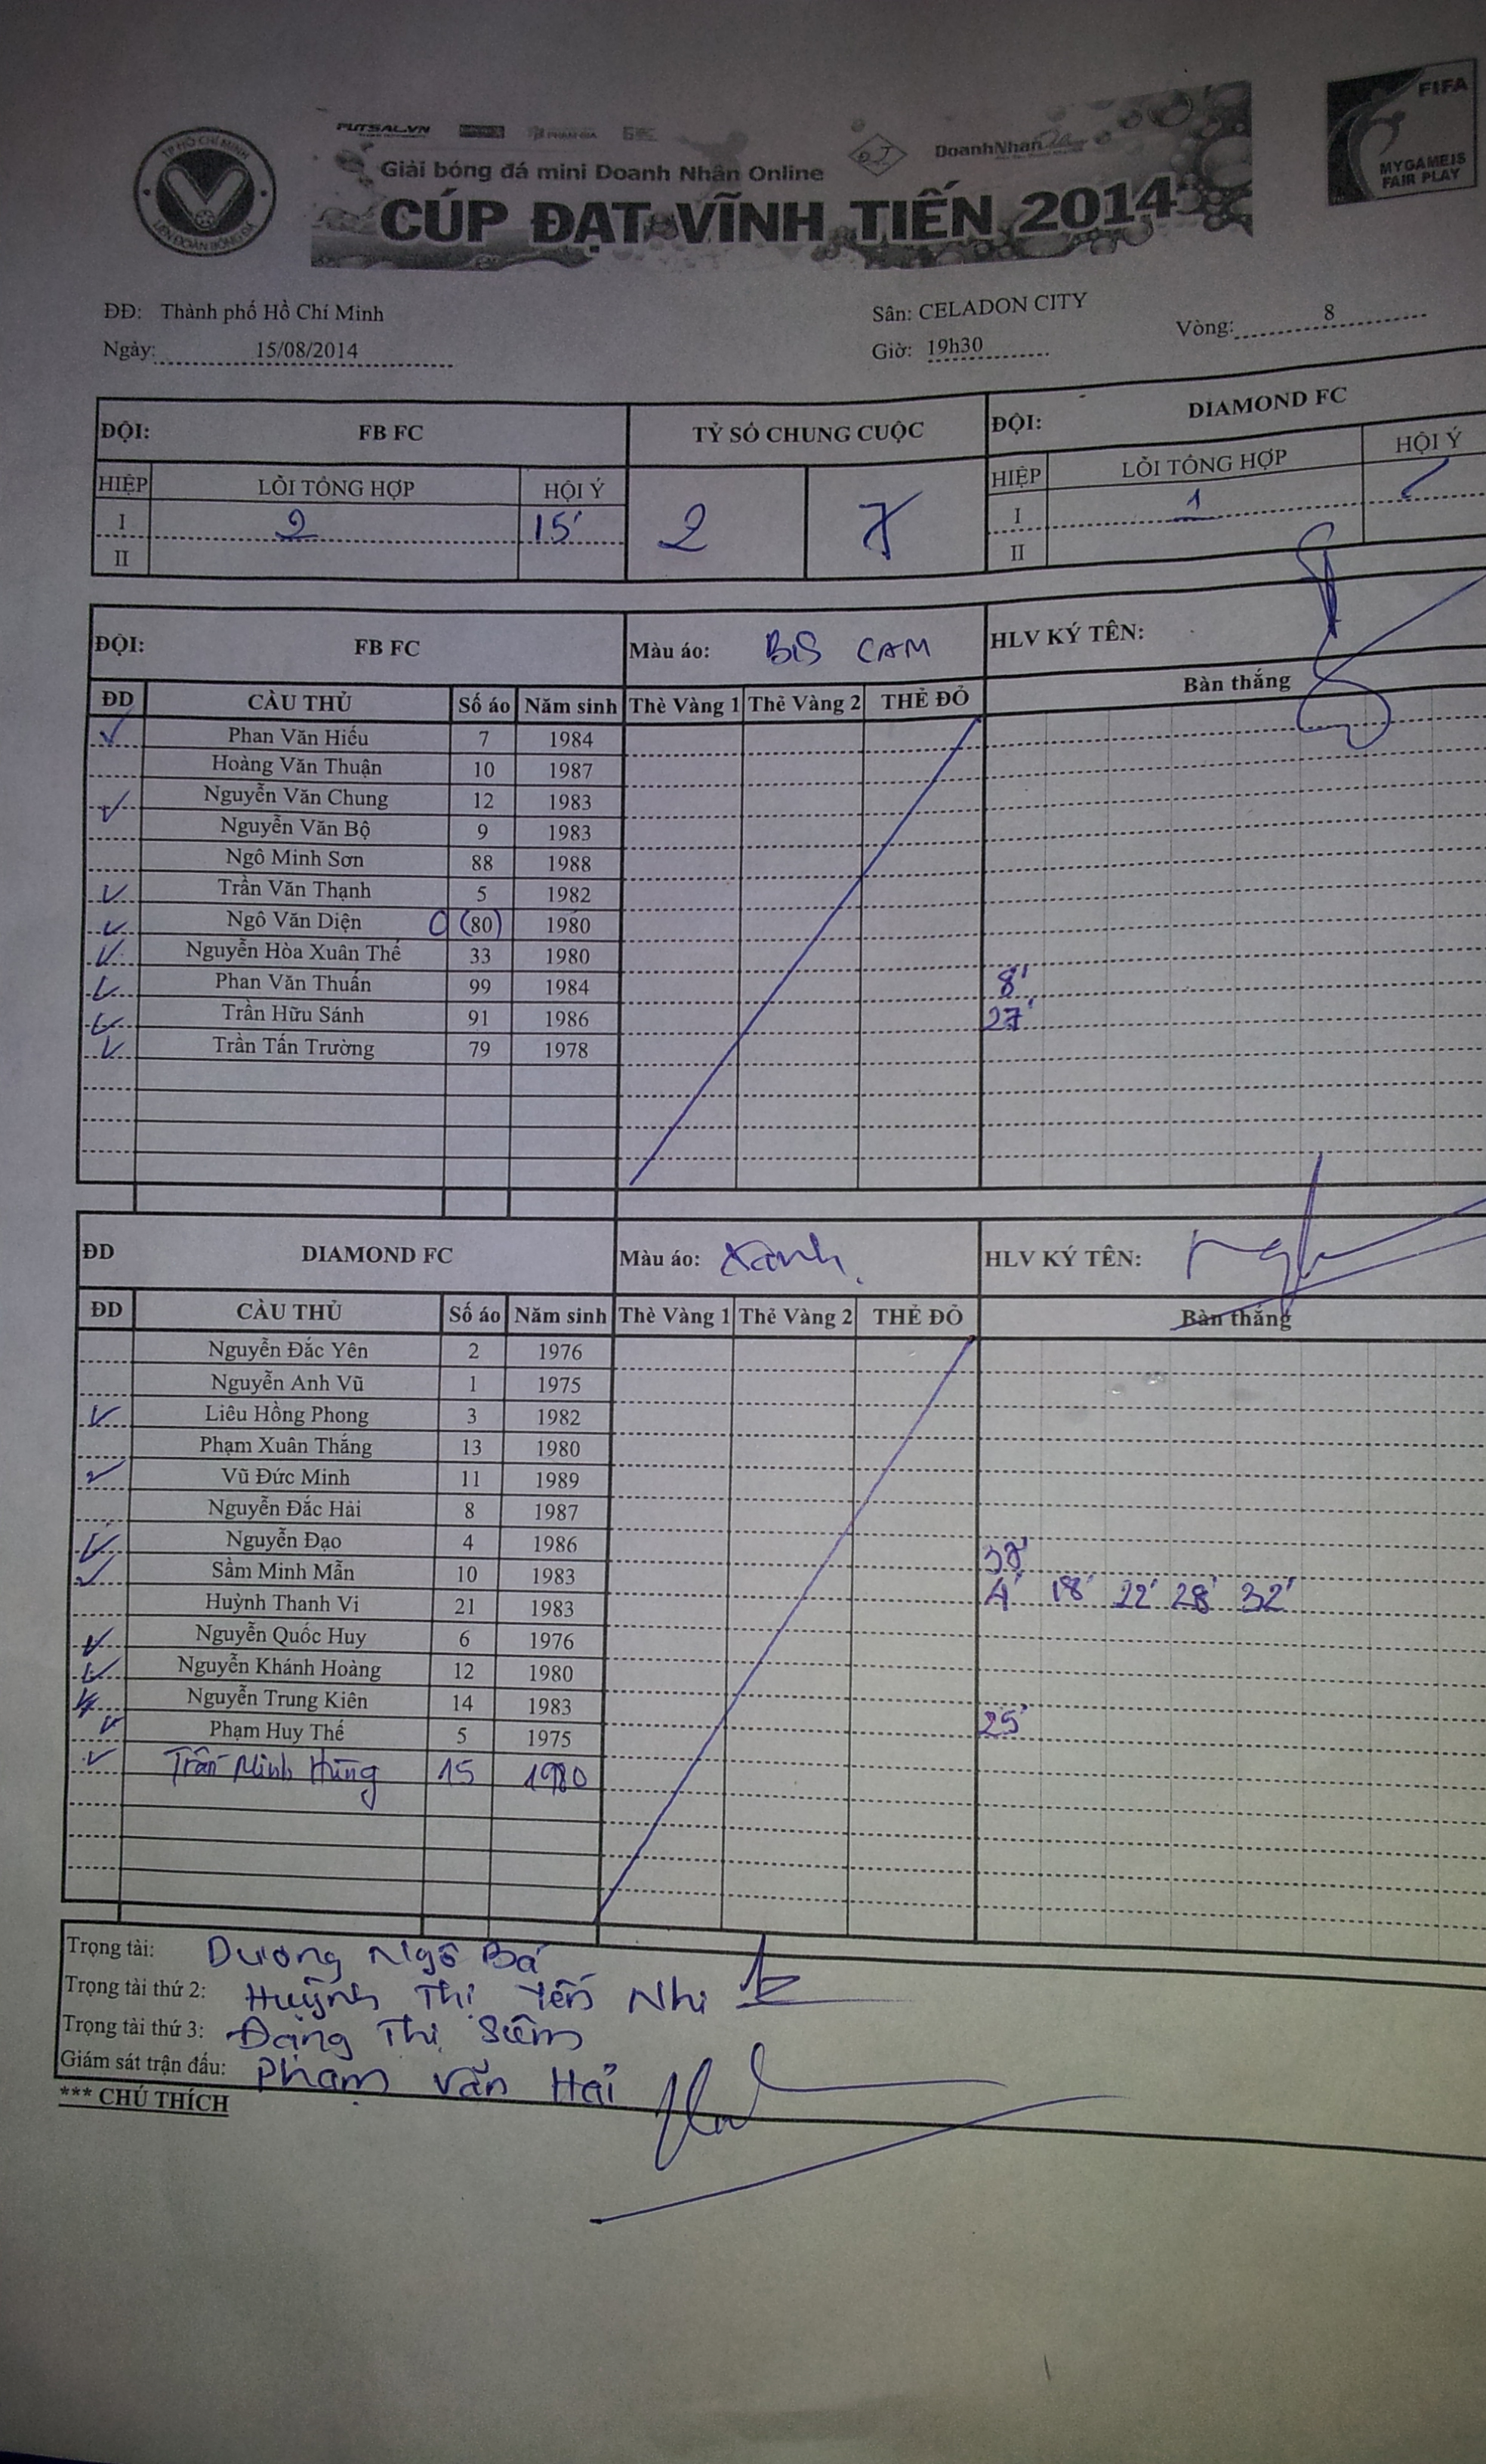 TP HỒ CHÍ MINH
LIÊN ĐOÀN BÓNG ĐÁ
FUTSAL.VN
DoanhNhan
Giải bóng đá mini Doanh Nhân Online
CÚP ĐẠT VĨNH TIẾN 2014
FIFA
MY GAME IS
FAIR PLAY
ĐĐ: Thành phố Hồ Chí Minh Sân: CELADON CITY Vòng: 8
Ngày: 15/08/2014 Giờ: 19h30
ĐỘI: FB FC TỶ SỐ CHUNG CUỘC ĐỘI: DIAMOND FC
HIỆP LỖI TỔNG HỢP HỘI Ý HIỆP LỖI TỔNG HỢP HỘI Ý
I 2 15' 2 7 I 1
II II
ĐỘI: FB FC Màu áo: BIS CAM HLV KÝ TÊN:
ĐD CẦU THỦ Số áo Năm sinh Thẻ Vàng 1 Thẻ Vàng 2 THẺ ĐỎ Bàn thắng
Phan Văn Hiếu 7 1984
Hoàng Văn Thuận 10 1987
Nguyễn Văn Chung 12 1983
Nguyễn Văn Bộ 9 1983
Ngô Minh Sơn 88 1988
Trần Văn Thạnh 5 1982
Ngô Văn Diện C (80) 1980
Nguyễn Hòa Xuân Thế 33 1980
Phan Văn Thuấn 99 1984 8'
Trần Hữu Sánh 91 1986 27'
Trần Tấn Trường 79 1978
ĐD DIAMOND FC Màu áo: Xanh. HLV KÝ TÊN:
ĐD CẦU THỦ Số áo Năm sinh Thẻ Vàng 1 Thẻ Vàng 2 THẺ ĐỎ Bàn thắng
Nguyễn Đắc Yên 2 1976
Nguyễn Anh Vũ 1 1975
Liêu Hồng Phong 3 1982
Phạm Xuân Thắng 13 1980
Vũ Đức Minh 11 1989
Nguyễn Đắc Hải 8 1987
Nguyễn Đạo 4 1986 37'
Sầm Minh Mẫn 10 1983 4' 18' 22' 28' 32'
Huỳnh Thanh Vi 21 1983
Nguyễn Quốc Huy 6 1976
Nguyễn Khánh Hoàng 12 1980
Nguyễn Trung Kiên 14 1983 25'
Phạm Huy Thế 5 1975
Trần Minh Hùng 15 1980
Trọng tài: Dương Ngô Bá
Trọng tài thứ 2: Huỳnh Thị Yến Nhi
Trọng tài thứ 3: Đặng Thị Siêm
Giám sát trận đấu: Phạm Văn Hải
*** CHÚ THÍCH